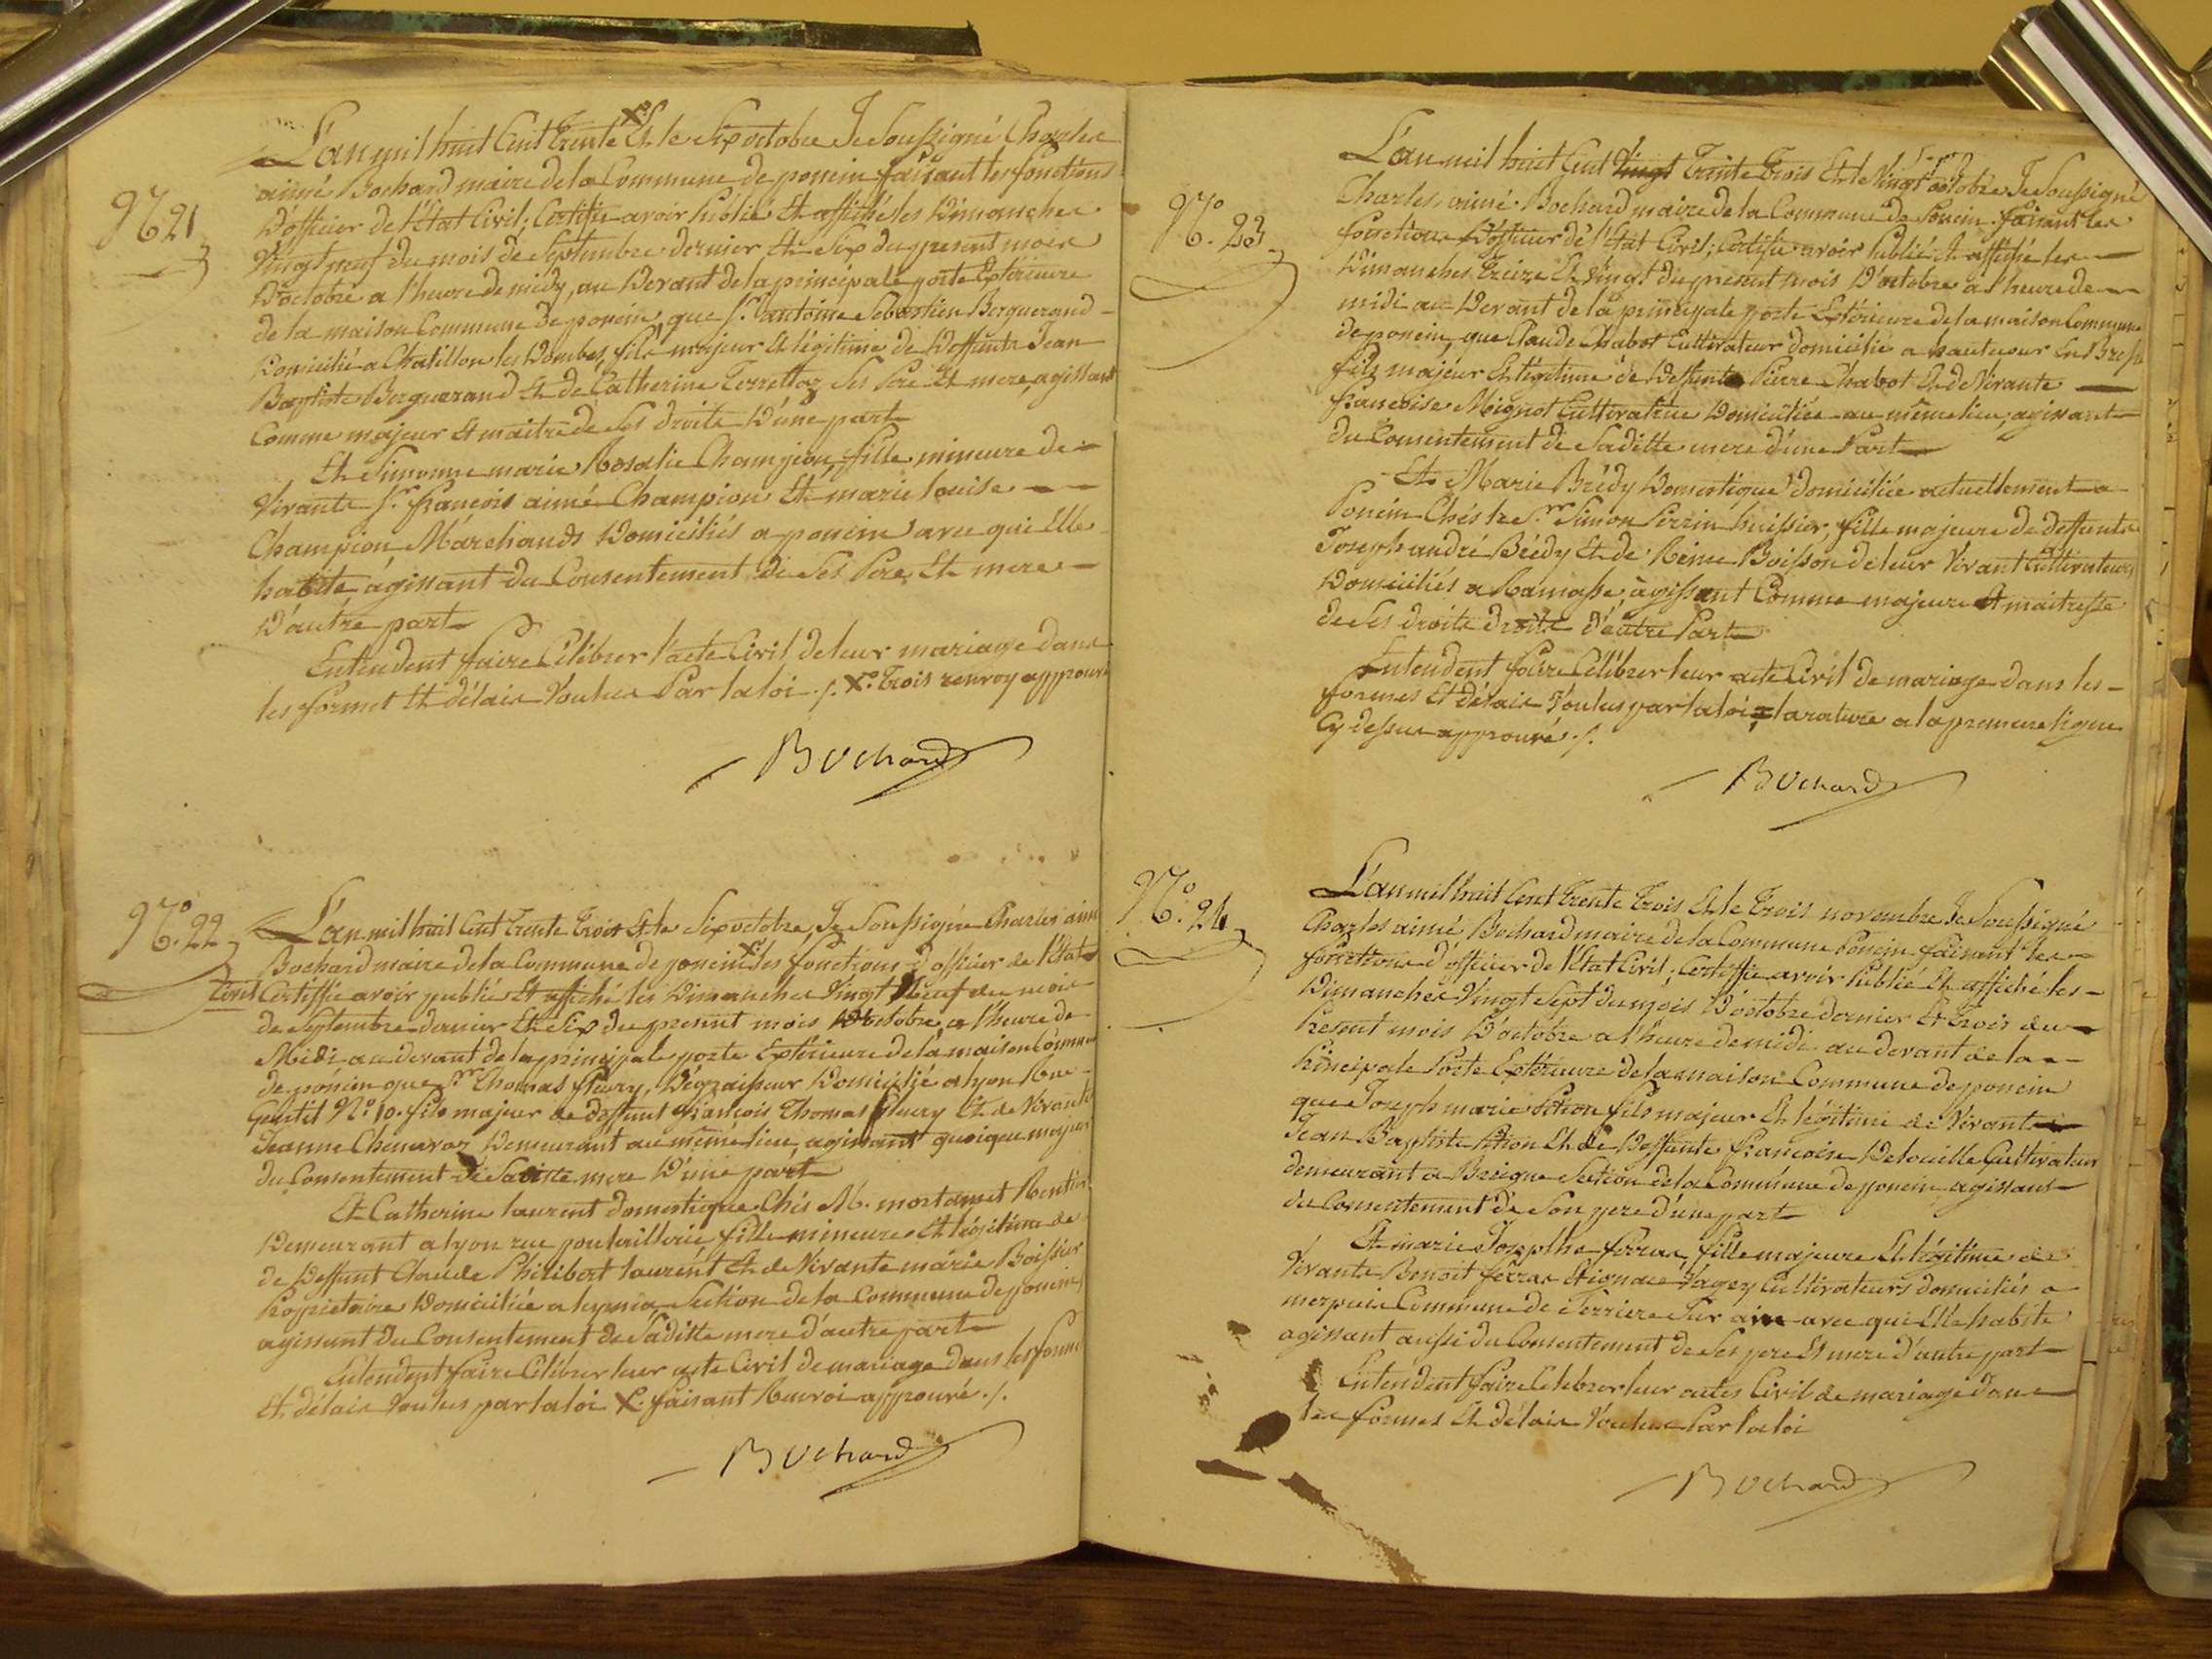 N.° 21
L'an mil huit Cent Trente X° Et le Six octobre Je Soussigné Charles
aimé Bochard maire de la Commune de poncin faisant les fonctions
D'officier de l'Etat Civil; Certifie avoir Publié Et affiché les Dimanches
Vingt neuf du mois de Septembre dernier Et Six du present mois
D'octobre a l'heure de midy, au Devant de la principale porte Extérieure
de la maison Commune de poncin, que S.r antoine Sebastien Berguerand
Domicilié a Chatillon les Dombes, fils majeur Et légitime de Deffunts Jean
Baptiste Berguerand Et de Catherine Terrettaz Ses Pere Et mere, agissant
Comme majeur Et maitre de Ses droits D'une part
Et Simonne marie Rosalie Champion, fille mineure de
Vivants S.r françois aimé Champion Et marie louise
Champion Marchands Domiciliés a poncin avec qui Elle
habite, agissant du Consentement de Ses Pere, Et mere
D'autre part
Entendent faire Célébrer l'acte Civil de leur mariage dans
les formes Et délais Voulus Par la loi ./. X.° Trois renvoy approuvé
Bochard
N.° 22
L'an mil huit Cent Trente Trois Et le Six octobre, Je Soussigné Charles aimé
Bochard maire de la Commune de poncin X° les fonctions d'officier de l'Etat
Civil Certiffie avoir publié Et affiché les Dimanches Vingt Neuf du mois
de Septembre dernier Et Six du present mois D'octobre a l'heure de
Midi au devant de la principale porte Extérieure de la maison Commune
de poncin que S.r Thomas fleury, Dégraisseur Domicilié a lyon Rue
Gentil N.° 10. fils majeur de deffunt françois Thomas fleury Et de Vivante
Jeanne Chenavaz Demeurant au même lieu, agissant quoique majeur
du Consentement de Saditte mere D'une part
Et Catherine laurent domestique Chés M. mortamet Rentier
Demeurant a lyon rue poulaillerie fille mineure Et légitime de
de Deffunt Claude Philibert laurent Et de Vivante marie Boissier
Propriétaire Domiciliée a leymia Section de la Commune de poncin
agissant du Consentement de Saditte mere d'autre part
Entendent faire Célébrer leur acte Civil de mariage dans les formes
Et délais Voulus par la loi X. faisant Renvoi approuvé ./.
Bochard
N.° 23
L'an mil huit Cent Vingt Trente Trois Et le Vingt octobre Je Soussigné
Charles, aimé Bochard maire de la Commune de Poncin faisant les
fonctions D'officier de l'Etat Civil; Certifie avoir Publié Et affiché les
Dimanches Treize Et Vingt du present mois D'octobre a l'heure de
midi au Devant de la principale porte Extérieure de la maison Commune
de poncin, que Claude Chabot Cultivateur domicilié a hautecour En Bresse
fils majeur Et légitime de Deffunt Pierre Chabot Et de Vivante
françoise Mignot Cultivatrice Domiciliée au même lieu, agissant
du Consentement de Saditte mere d'une Part
Et Marie Brédy Domestique domiciliée actuellement a
Poncin Chés le S.r Simon Perrin huissier, fille majeure de deffunts
Joseph andré Brédy Et de Reine Boisson de leur Vivant Cultivateurs
Domiciliés a Ramasse, agissant Comme majeure Et maitresse
de Ses droits droits d'autre Part
Entendent faire Célébrer leur acte Civil de mariage dans les
formes Et délais Voulus par la loi, la rature a la premiere ligne
Cy dessus approuvé ./.
Bochard
N.° 24
L'an mil huit Cent trente Trois Et le Trois novembre Je Soussigné
Charles aimé Bochard maire de la Commune Poncin faisant les
fonctions d'officier de l'Etat Civil; Certiffie avoir Publié Et affiché les
Dimanches Vingt Sept du mois D'octobre dernier Et Trois du
Present mois D'octobre a l'heure de midi au devant de la
Principale Porte Extérieure de la maison Commune de poncin
que Joseph marie Pition fils majeur Et légitime de Vivant
Jean Baptiste Pition Et de Deffunte françoise Delouille Cultivateur
demeurant a Breigne Section de la Commune de poncin agissant
du Consentement de Son pere d'une part
Et marie Josephe ferras, fille majeure Et légitime de
Vivants Benoit ferras Et ignace Vagey Cultivateurs domiciliés a
merpuis Commune de Serriere Sur ain avec qui Elle habite
agissant aussi du Consentement de Ses pere Et mere d'autre part
Entendent faire Célébrer leur actes Civil de mariage dans
les formes Et délais Voulus Par la loi
Bochard